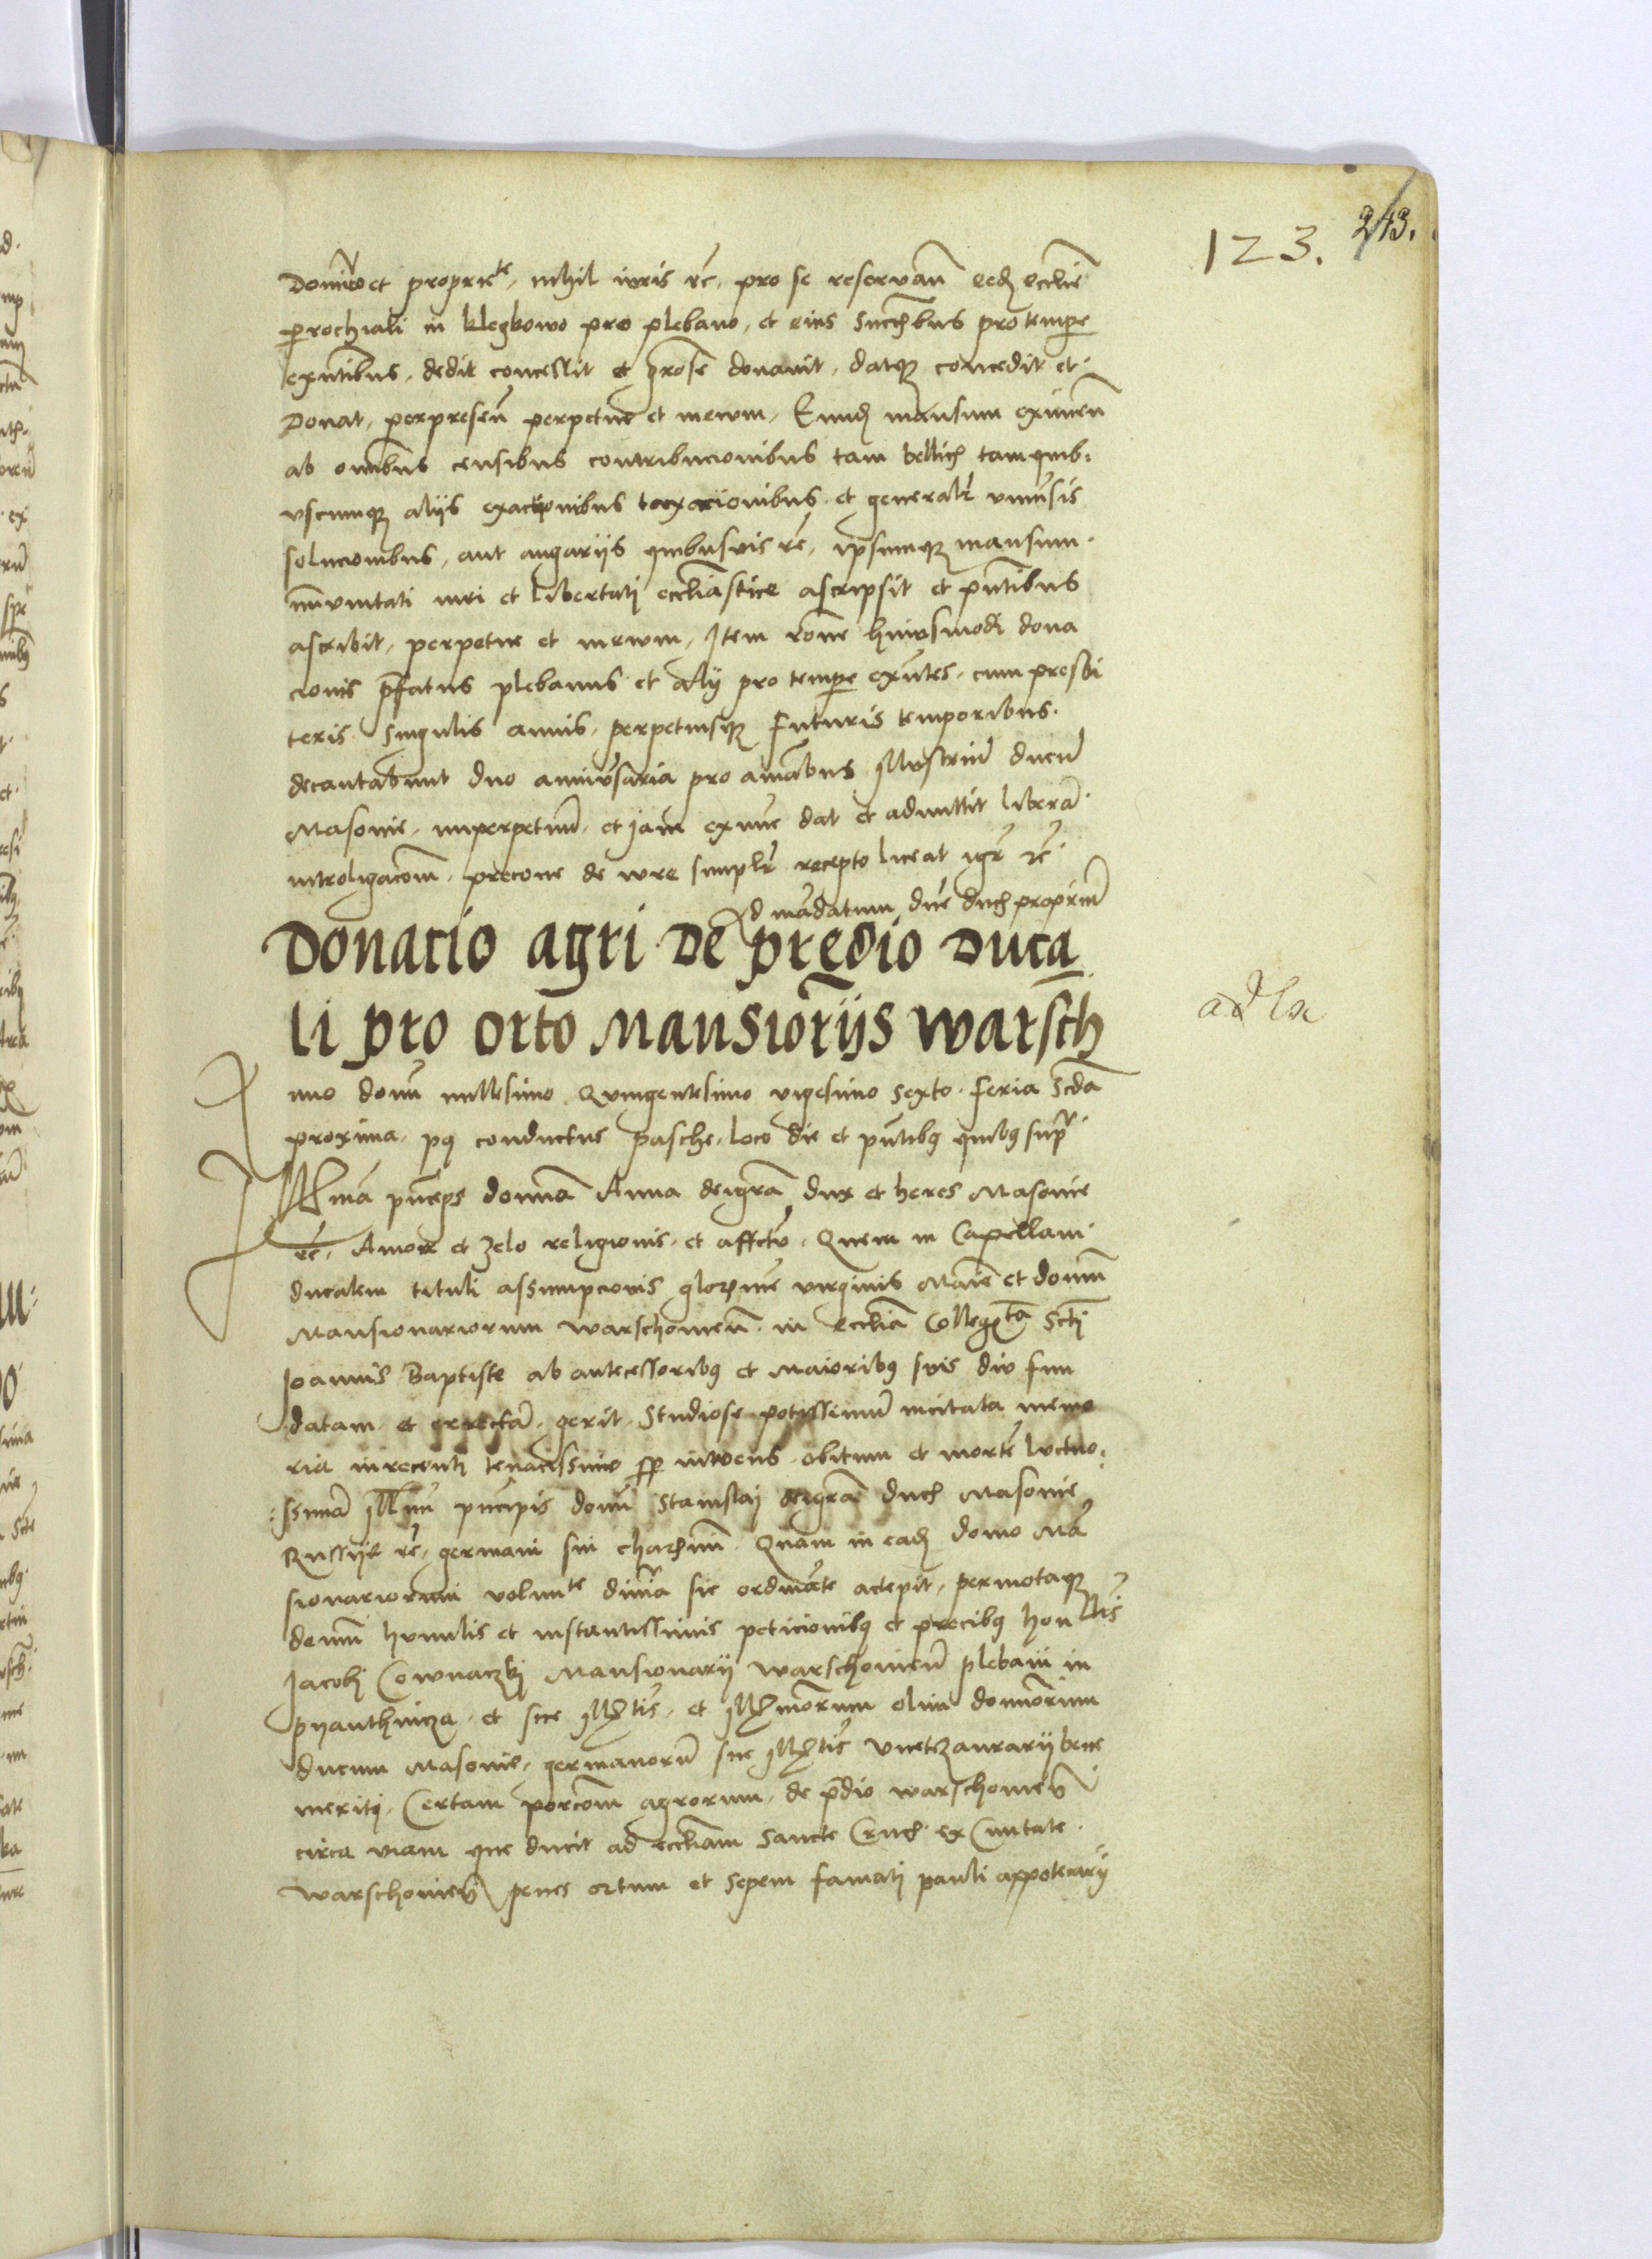 123. 243.
Dominio et propriete, nihil iuris rē, pro se reservan̄ eedē ecclie
parochiali in klegkowo pro plebano, et eius successoribus pro tempore
exn̄tibus, dedit concessit et grose donavit, datqꝫ concedit et
Donat, per presen̄ perpetue et in ewm, Eundē mansum eximen̄
ab omibus censibus contribucionibus tam bellicis tam quib.
uscumqꝫ alijs exactionibus taxacionibus et generalr̄ univsis
solucionibus, aut angarijs quibusvis rē, ipsumqꝫ mansum
immunitati iuri et libertati eccliastice ascripsit et pn̄tibus
ascribit, perpetue et in ewm, Item rōne huiusmodi dona
cionis prefatus plebanus et alij pro tempore exn̄tes, cum presbi
teris singulis annis, perpetuisqꝫ futuris temporibus
decantabunt duo anniv̄saria pro aīabus illustriū ducū
Masovie, imperpetuū, et iam ex nūc dat et admittit liberā
introligacōm, precone de iure simplr̄ recepto liceat igr̄ rē
Ad mādatum dn̄e ducis propriū
Donacio agri de predio Duca
li pro orto Mansiorijs Warsch
adla
Anno domī millesimo Quingentesimo vigesimo sexto feria scdā
proxima, pꝰ conductus pasche, loco die et pn̄tibꝰ quibꝰ supra
Illma pn̄ceps domina Anna dei grā dux et heres Masovie
rē, Amore et zelo religionis et affectu, Quem in Capellam
ducalem tituli assumpcionis gloriose virginis Marie et domum
Mansionariorum warschovien̄ in eccliā Collegiata Scti
Joannis Baptiste ab antecessoribꝰ et Maioribꝰ suis div fun
datam et errectā, gerit, Studiose potissimum incitata memo
ria in recenti tenacissime semper intuens obitum et mortē luctuo.
:ssimā Illmi pn̄cipis domī Stanislai dei grā ducis Masovie
Russije rē, germani sui charissimi Quam in eadē domo Mā
sionariorum volunte divina sic ordinante accepit, permotaqꝫ
demū humilis et instantissimis peticionibꝰ et precibꝰ honblis
Jacobi Cownaczki Mansionarij Warschovien̄ plebani in
pyanthnicza et sue Illtis, et Illmorum olim dominorum
ducum Masovie, germanorū sue Illtis vicetezaurarij bene
meriti, Certam porcōm agrorum, de pdio warschovien̄
circa viam que ducit ad eccliam Sancte Crucis ex Civitate
Warschovien̄ penes ortum et sepem famati pauli appotecarij